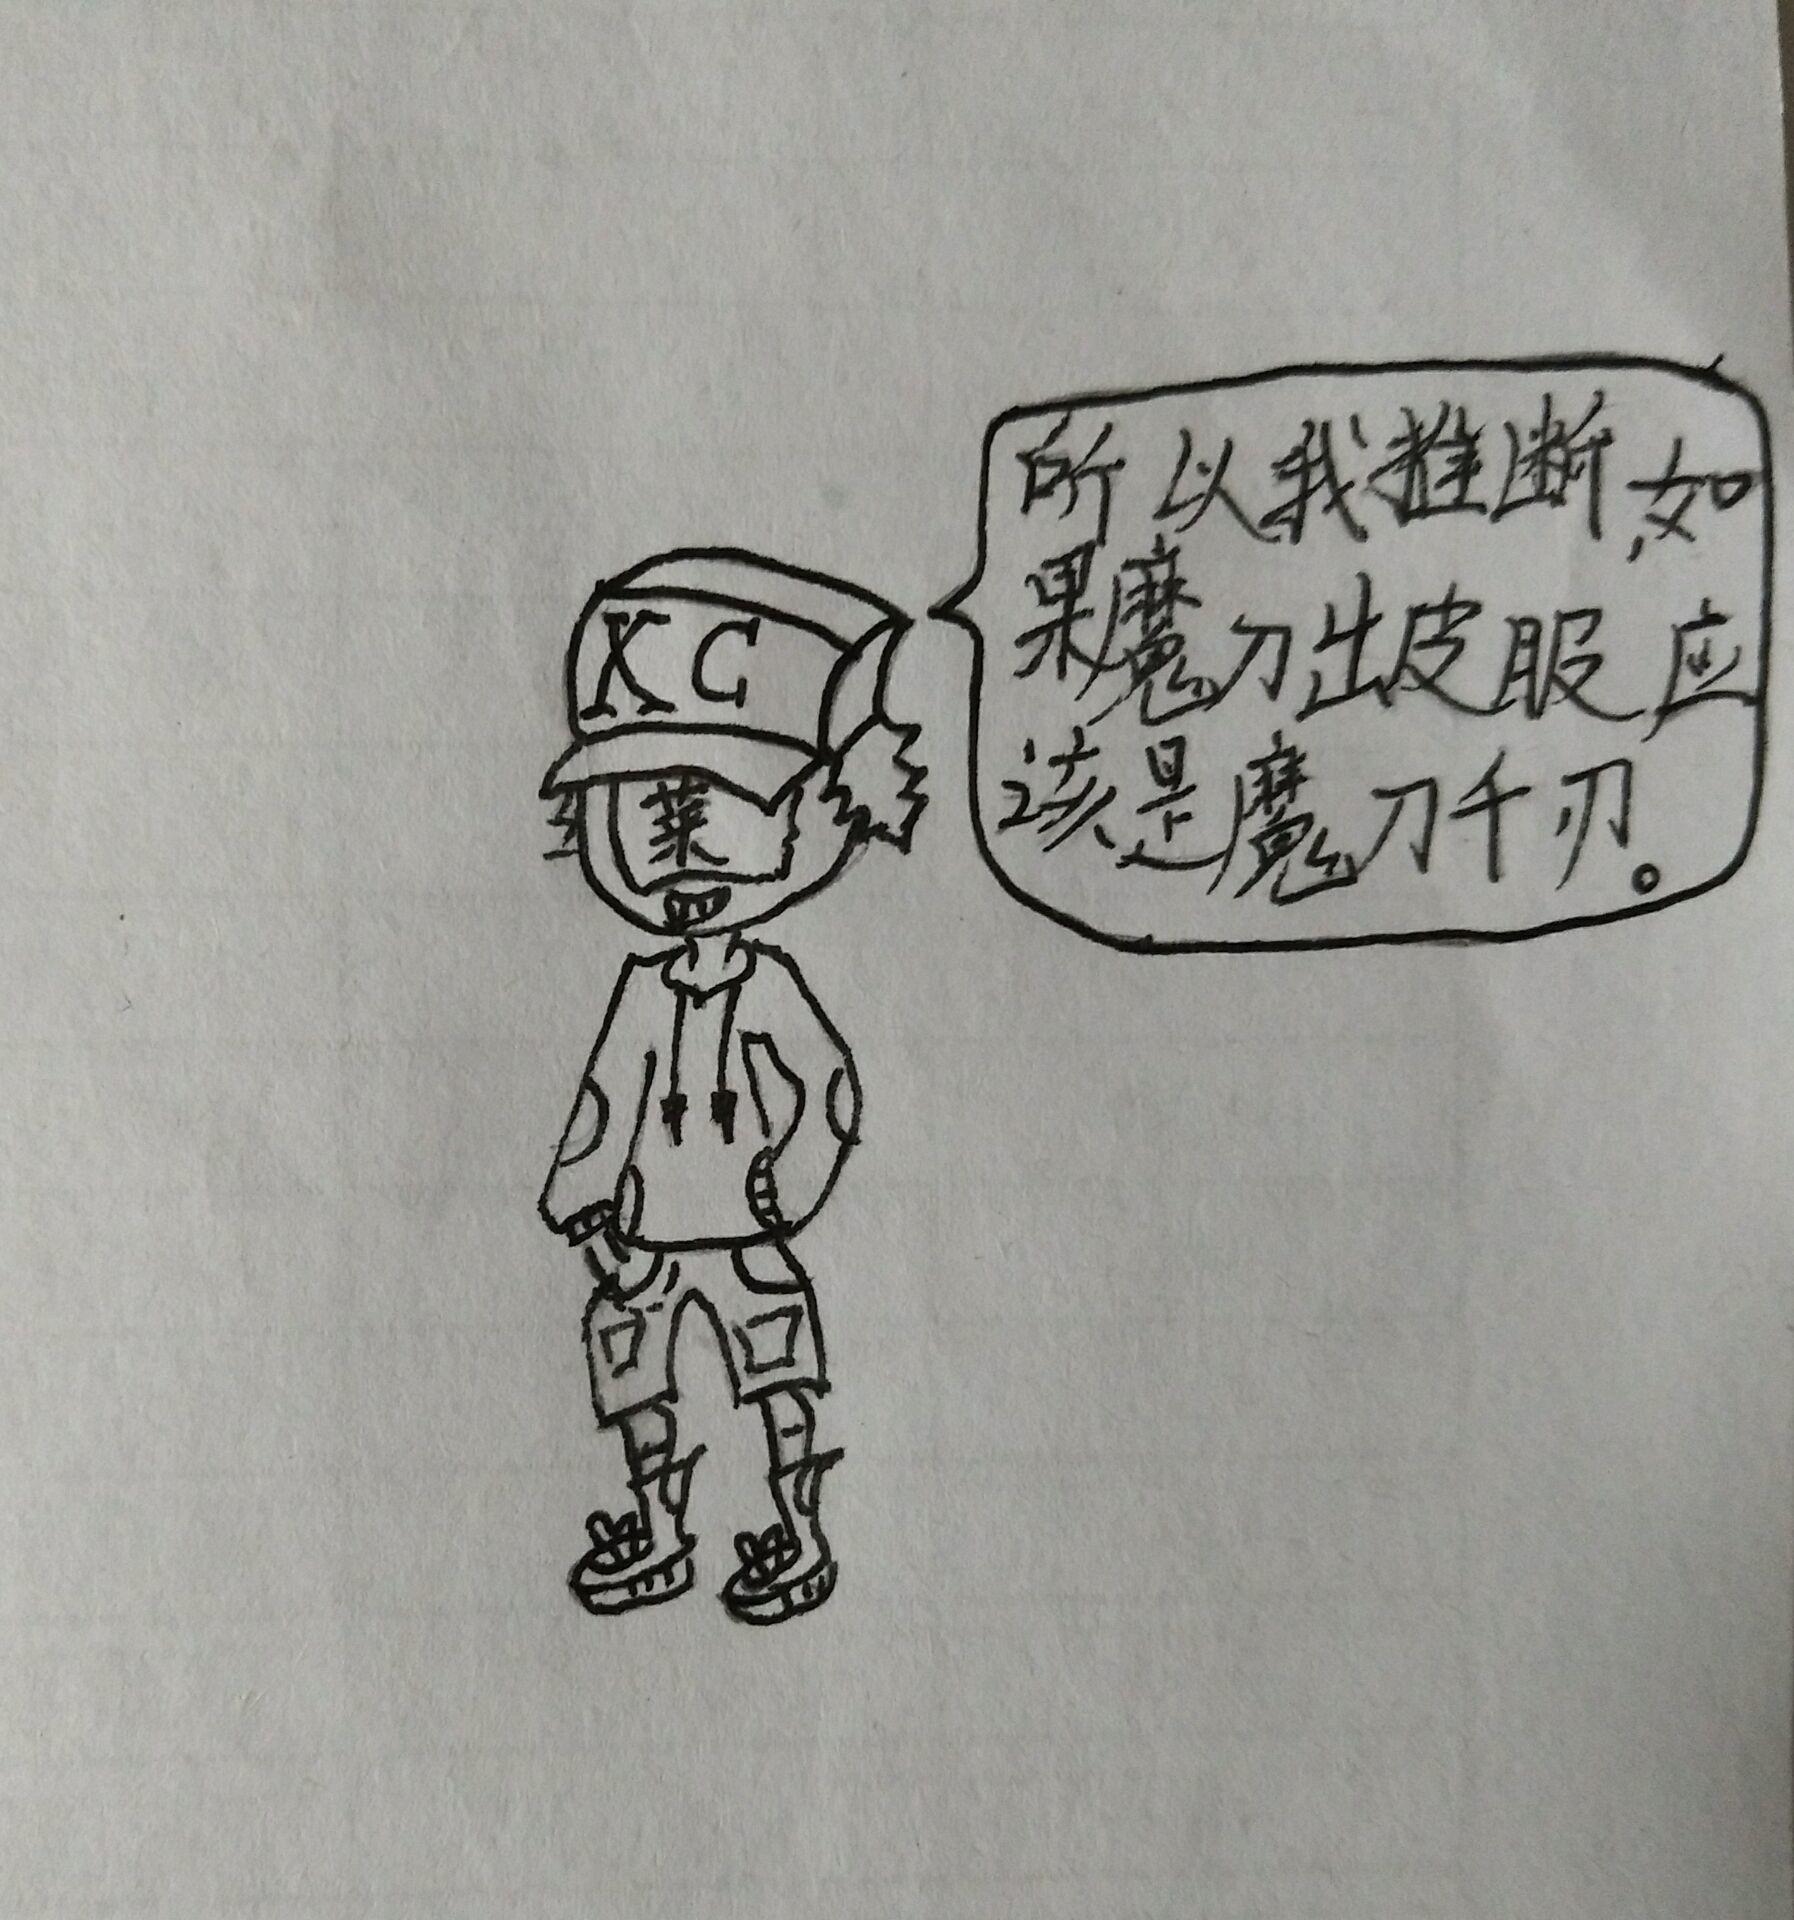 XC
菜
所以我推断,如
果魔刀出皮服应
该是魔刀千刃。